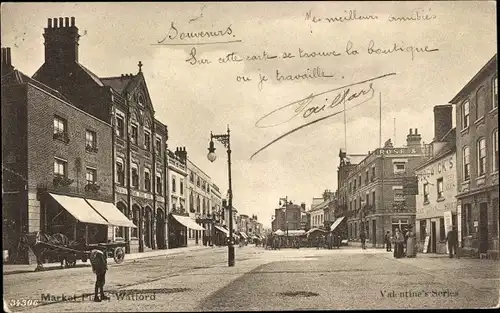 Souvenirs.
Mes meilleurs amitiés
Sur cette carte se trouve la boutique
ou je travaille
ROSE
34306 Market Place, Watford
Valentine's Series